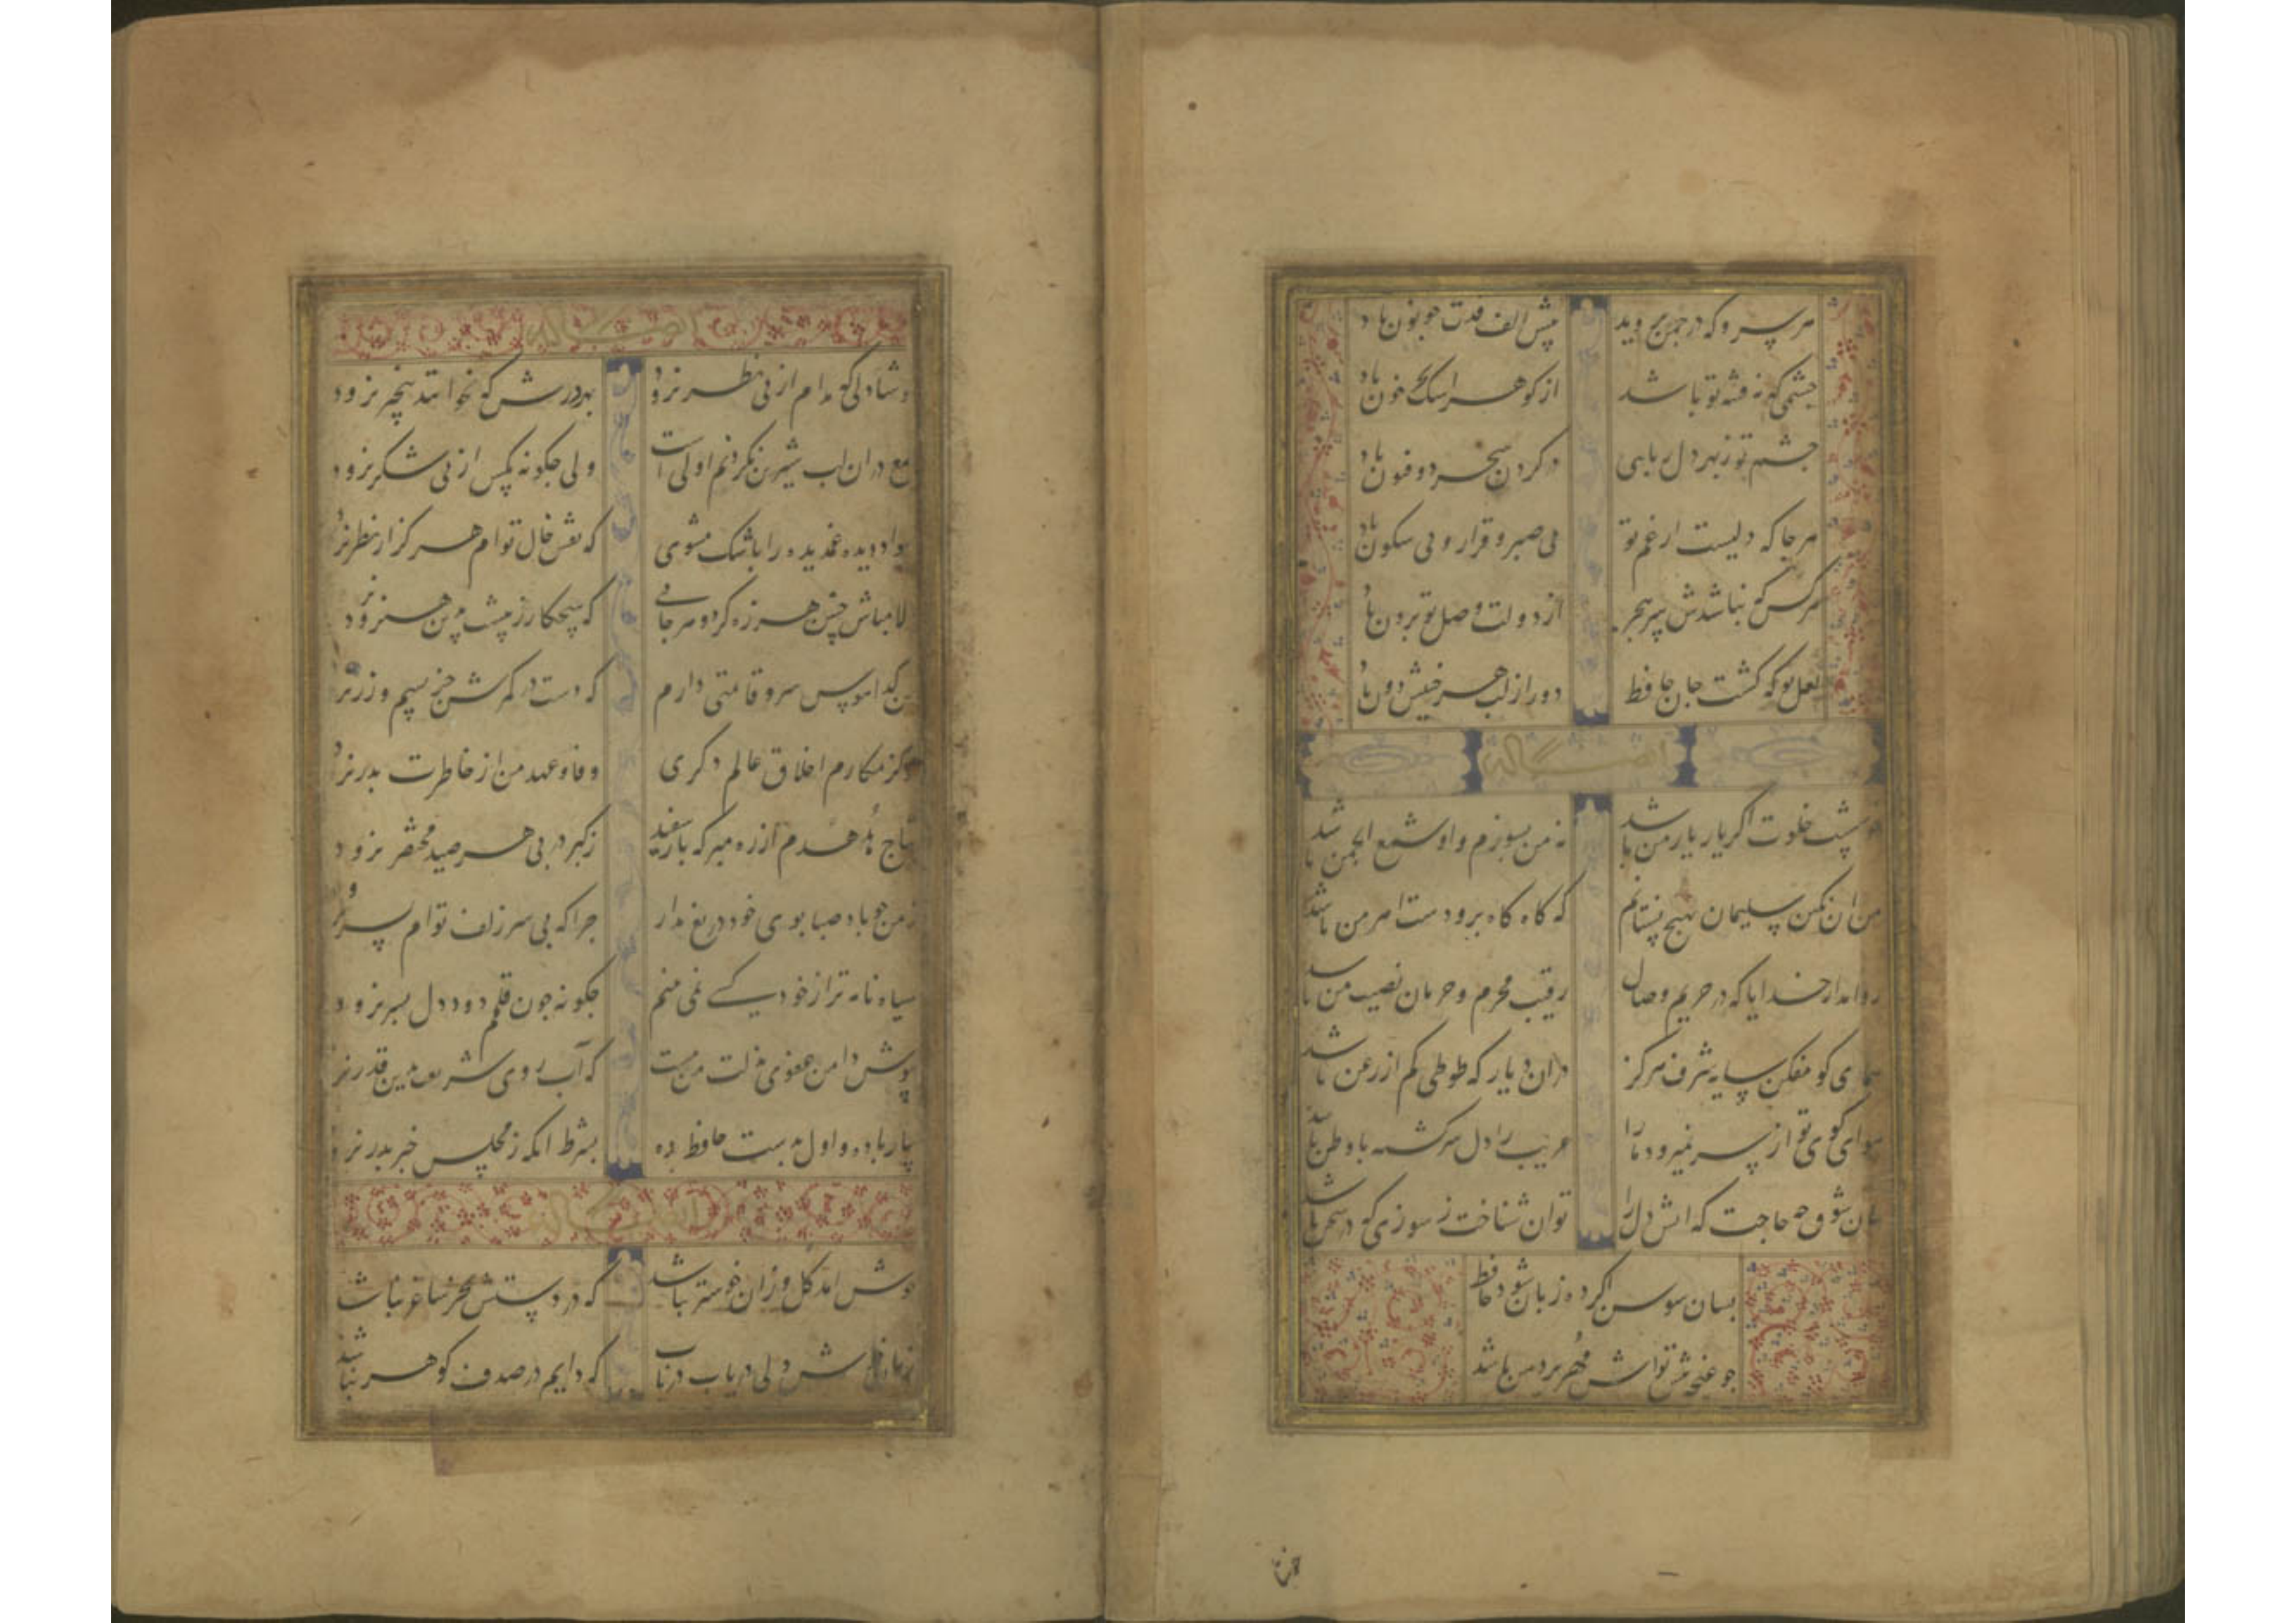 هر سرو که در چمن بروید پیش الف قدت چو نون باد
چشمی که نه فتنه تو باشد از کوهر اشک بحر خون باد
چشم تو زبهر دل ربایی در کردن سحر ذو فنون باد
هر جا که دلیست از غم تو بی صبر و قرار و بی سکون باد
هر کس که نباشدش سر هجر از دولت وصل تو برون باد
لعل تو که کشت جان حافظ دور از لب هر خسیس دون باد
خوشست خلوت اکر یار یار من باشد نه من بسوزم و او شمع انجمن باشد
من ان نکین سلیمان بهیچ نستانم که کاه کاه برو دست اهرمن باشد
روا مدار خدایا که در حریم وصال رقیب محرم و حرمان نصیب من باشد
همای کو مفکن سایه شرف هرکز در ان دیار که طوطی کم از زغن باشد
هوای کوی تو از سر نمیرود ما را غریب را دل سرکشته با وطن باشد
بیان شوق چه حاجت که اتش دل را توان شناخت ز سوزی که در سخن باشد
بسان سوسن اکر ده زبان شود حافظ
چو غنچه پیش تواش مهر بر دهن باشد
خوشا دلی که مدام از پی نظر نرود بهر درش که بخوانند بیخبر نرود
طمع در ان لب شیرین نکردنم اولی است ولی چکونه مکس از پی شکر نرود
سواد دیده غمدیده را باشک مشوی که نقش خال توام هرکز از نظر نرود
دلا مباش چنین هرزه کرد و هرجایی که هیچکار ز پیشت بدین هنر نرود
من کدا هوس سرو قامتی دارم که دست در کمرش جز بسیم و زر نرود
تو کز مکارم اخلاق عالم دکری وفا و عهد من از خاطرت بدر نرود
بتاج هدهدم از ره مبر که باز سفید ز کبر در پی هر صید مختصر نرود
ز من چو باد صبا بوی خود دریغ مدار چرا که بی سر زلف توام بسر نرود
سیاه نامه تر از خود کسی نمی بینم چکونه چون قلمم دود دل بسر نرود
بپوش دامن عفوی بزلت من مست که آب روی شریعت بدین قدر نرود
بیار باده و اول بدست حافظ ده بشرط انکه ز مجلس خبر بدر نرود
خوش امد کل وزان خوشتر نباشد که در دستش بجز ساغر نباشد
زمان خوش دلی دریاب دریاب که دایم در صدف کوهر نباشد